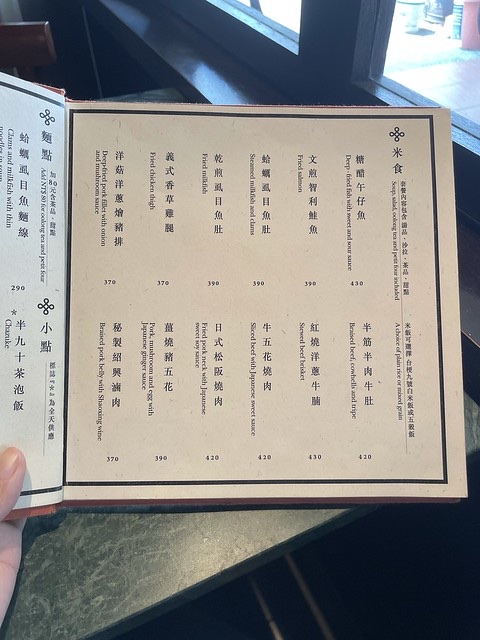 米食
套餐內容包含 湯品、沙拉、茶品、甜點
Soup, salad, oolong tea and petit four included
米飯可選擇 台梗九號白米飯或五穀飯
A choice of plain rice or mixed grain
糖醋午仔魚
Deep-fried fish with sweet and sour sauce
430
文煎智利鮭魚
Fried salmon
390
蛤蠣虱目魚肚
Steamed milkfish and clams
390
乾煎虱目魚肚
Fried milkfish
390
義式香草雞腿
Fried chicken thigh
370
洋菇洋蔥燴豬排
Deep-fried pork fillet with onion
and mushroom sauce
370
半筋半肉牛肚
Braised beef, cowheels and tripe
420
紅燒洋蔥牛腩
Stewed beef brisket
430
牛五花燒肉
Sliced beef with Japanese sweet sauce
420
日式松阪燒肉
Fried pork neck with Japanese
sweet soy sauce
420
薑燒豬五花
Pork, mushroom and egg with
Japanese ginger sauce
390
秘製紹興滷肉
Braised pork belly with Shaoxing wine
370
麵點
加80元含茶品、甜點
Add NT$80 for oolong tea and petit four
蛤蠣虱目魚麵線
Clams and milkfish with thin
noodles in soup
290
小點
標誌『*』為全天供應
*半九十茶泡飯
Chazuke